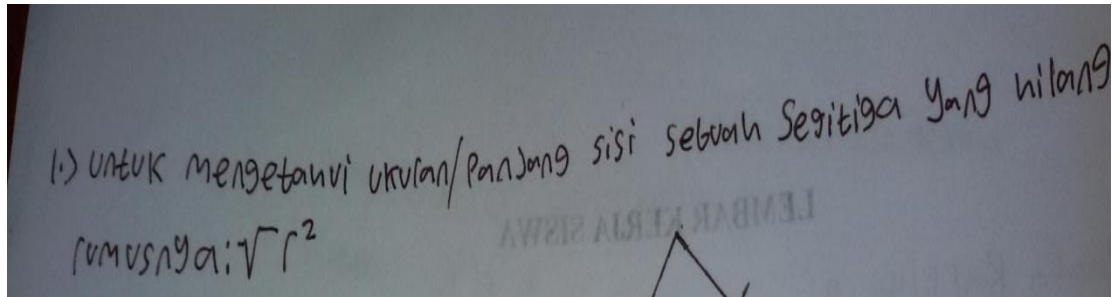 1.) untuk mengetahui ukuran/Panjang sisi sebuah Segitiga yang hilang
rumusnya: √r²
LEMBAR KERJA SISWA